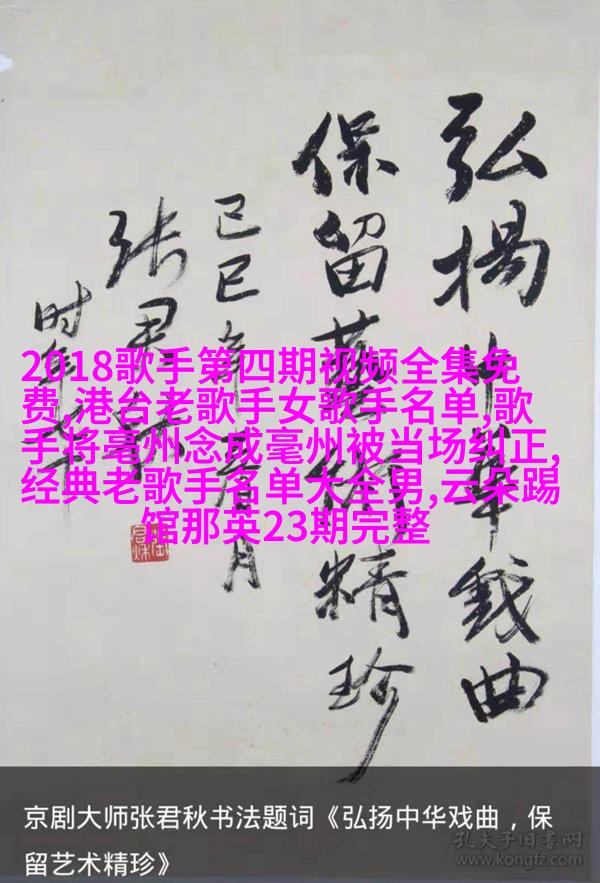 弘揚中華戏曲
保留藝術精珍
己巳年春月
张君秋
时年
2018歌手第四期视频全集免
费,港台老歌手女歌手名单,歌
手将亳州念成毫州被当场纠正,
经典老歌手名单大全男,云朵踢
馆那英23期完整
京剧大师张君秋书法题词《弘扬中华戏曲，保
留艺术精珍》
孔夫子旧书网
www.kongfz.com